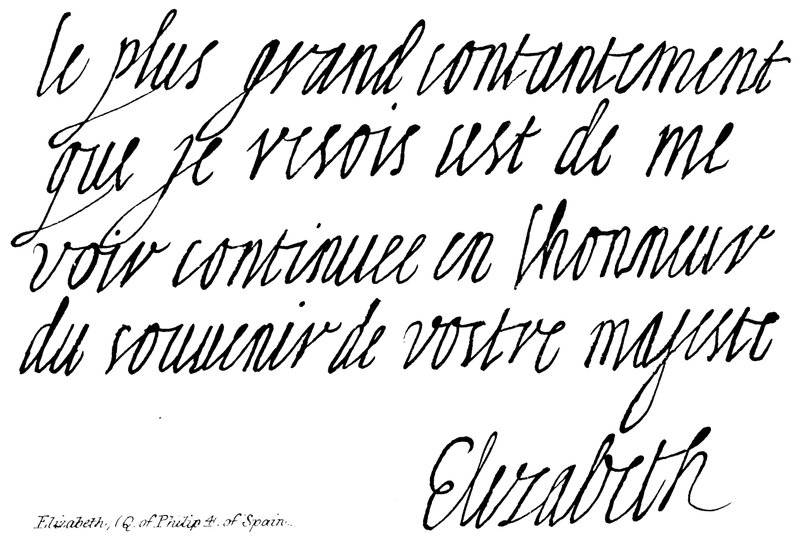 le plus grand contantement
que je resois cest de me
voir continuee en lhonneur
du souvenir de vostre majeste
Elizabeth
Elizabeth, (Q. of Philip 4. of Spain.